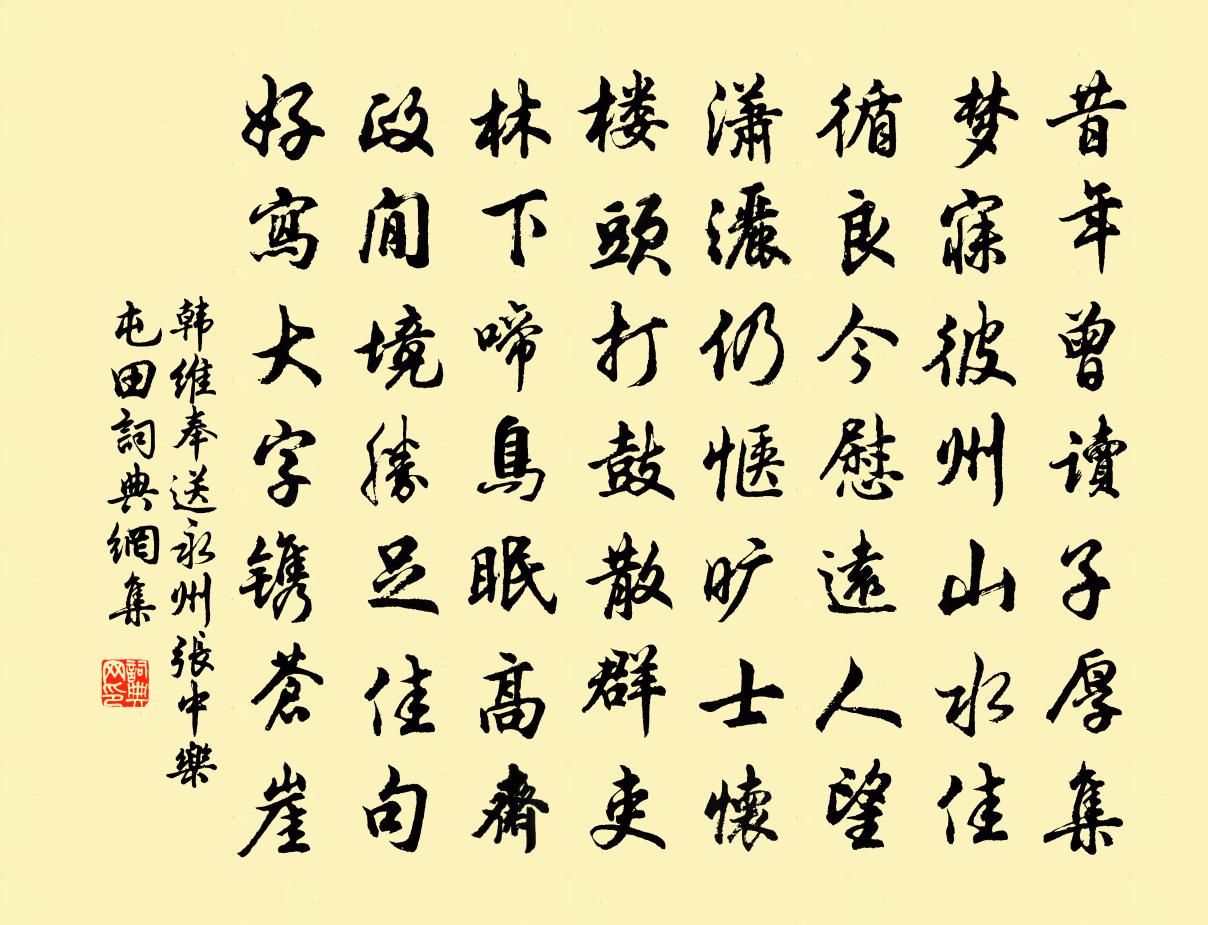 昔年曾讀子厚集
梦寐彼州山水佳
循良今慰遠人望
潇灑仍惬旷士懷
楼頭打鼓散群吏
林下啼鳥眠高齋
政閒境勝足佳句
好寫大字镌蒼崖
韩維奉送永州張中樂
屯田詞典網集
詞典网印